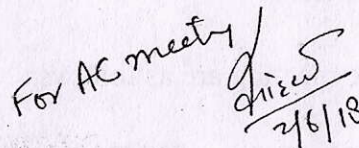 For AC meeting
2/6/18